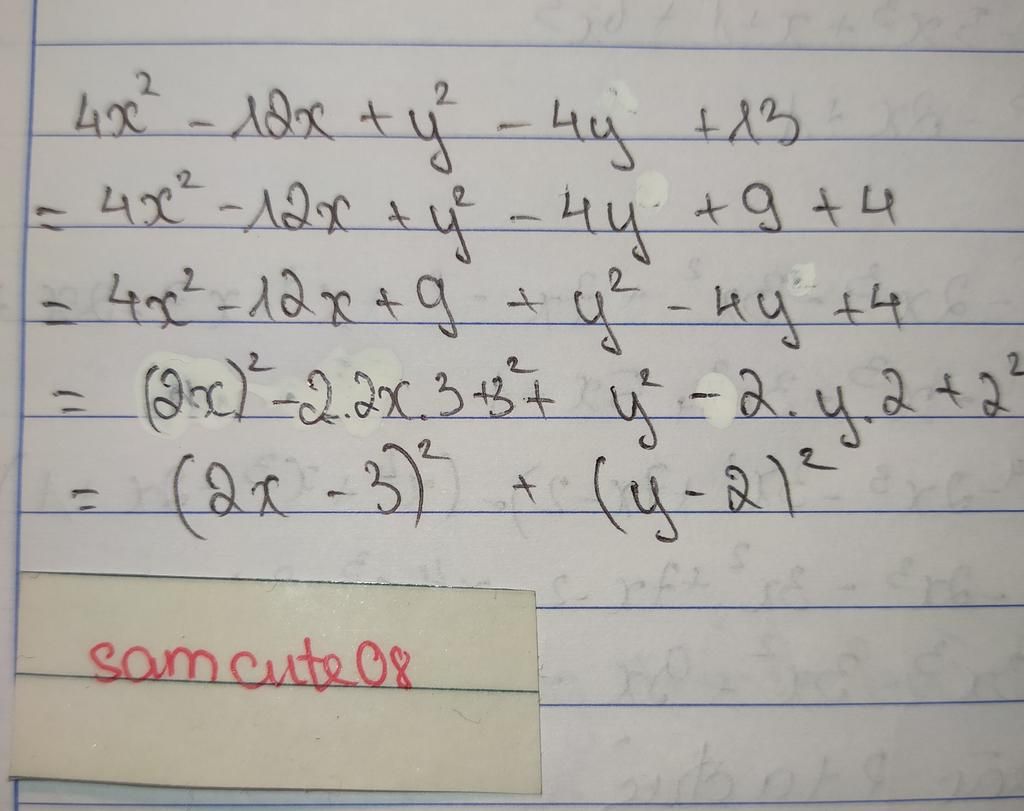 4x² - 12x + y² - 4y + 13
= 4x² - 12x + y² - 4y + 9 + 4
= 4x² - 12x + 9 + y² - 4y + 4
= (2x)² - 2.2x.3 + 3² + y² - 2.y.2 + 2²
= (2x - 3)² + (y - 2)²
samcute08